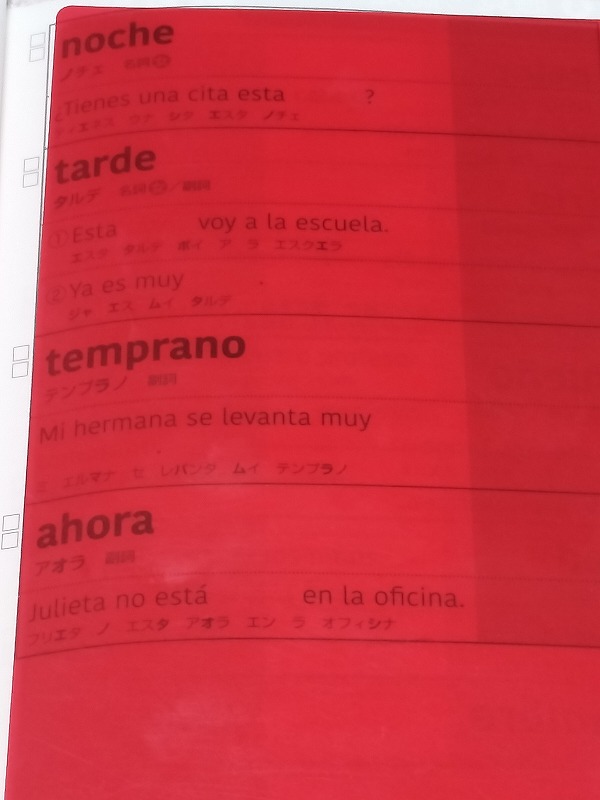 noche
ノチェ 名詞㊛
¿Tienes una cita esta ?
ティエネス ウナ シタ エスタ ノチェ
tarde
タルデ 名詞㊛／副詞
①Esta voy a la escuela.
エスタ タルデ ボイ ア ラ エスクエラ
②Ya es muy .
ジャ エス ムイ タルデ
temprano
テンプラノ 副詞
Mi hermana se levanta muy
ミ エルマナ セ レバンタ ムイ テンプラノ
ahora
アオラ 副詞
Julieta no está en la oficina.
フリエタ ノ エスタ アオラ エン ラ オフィシナ